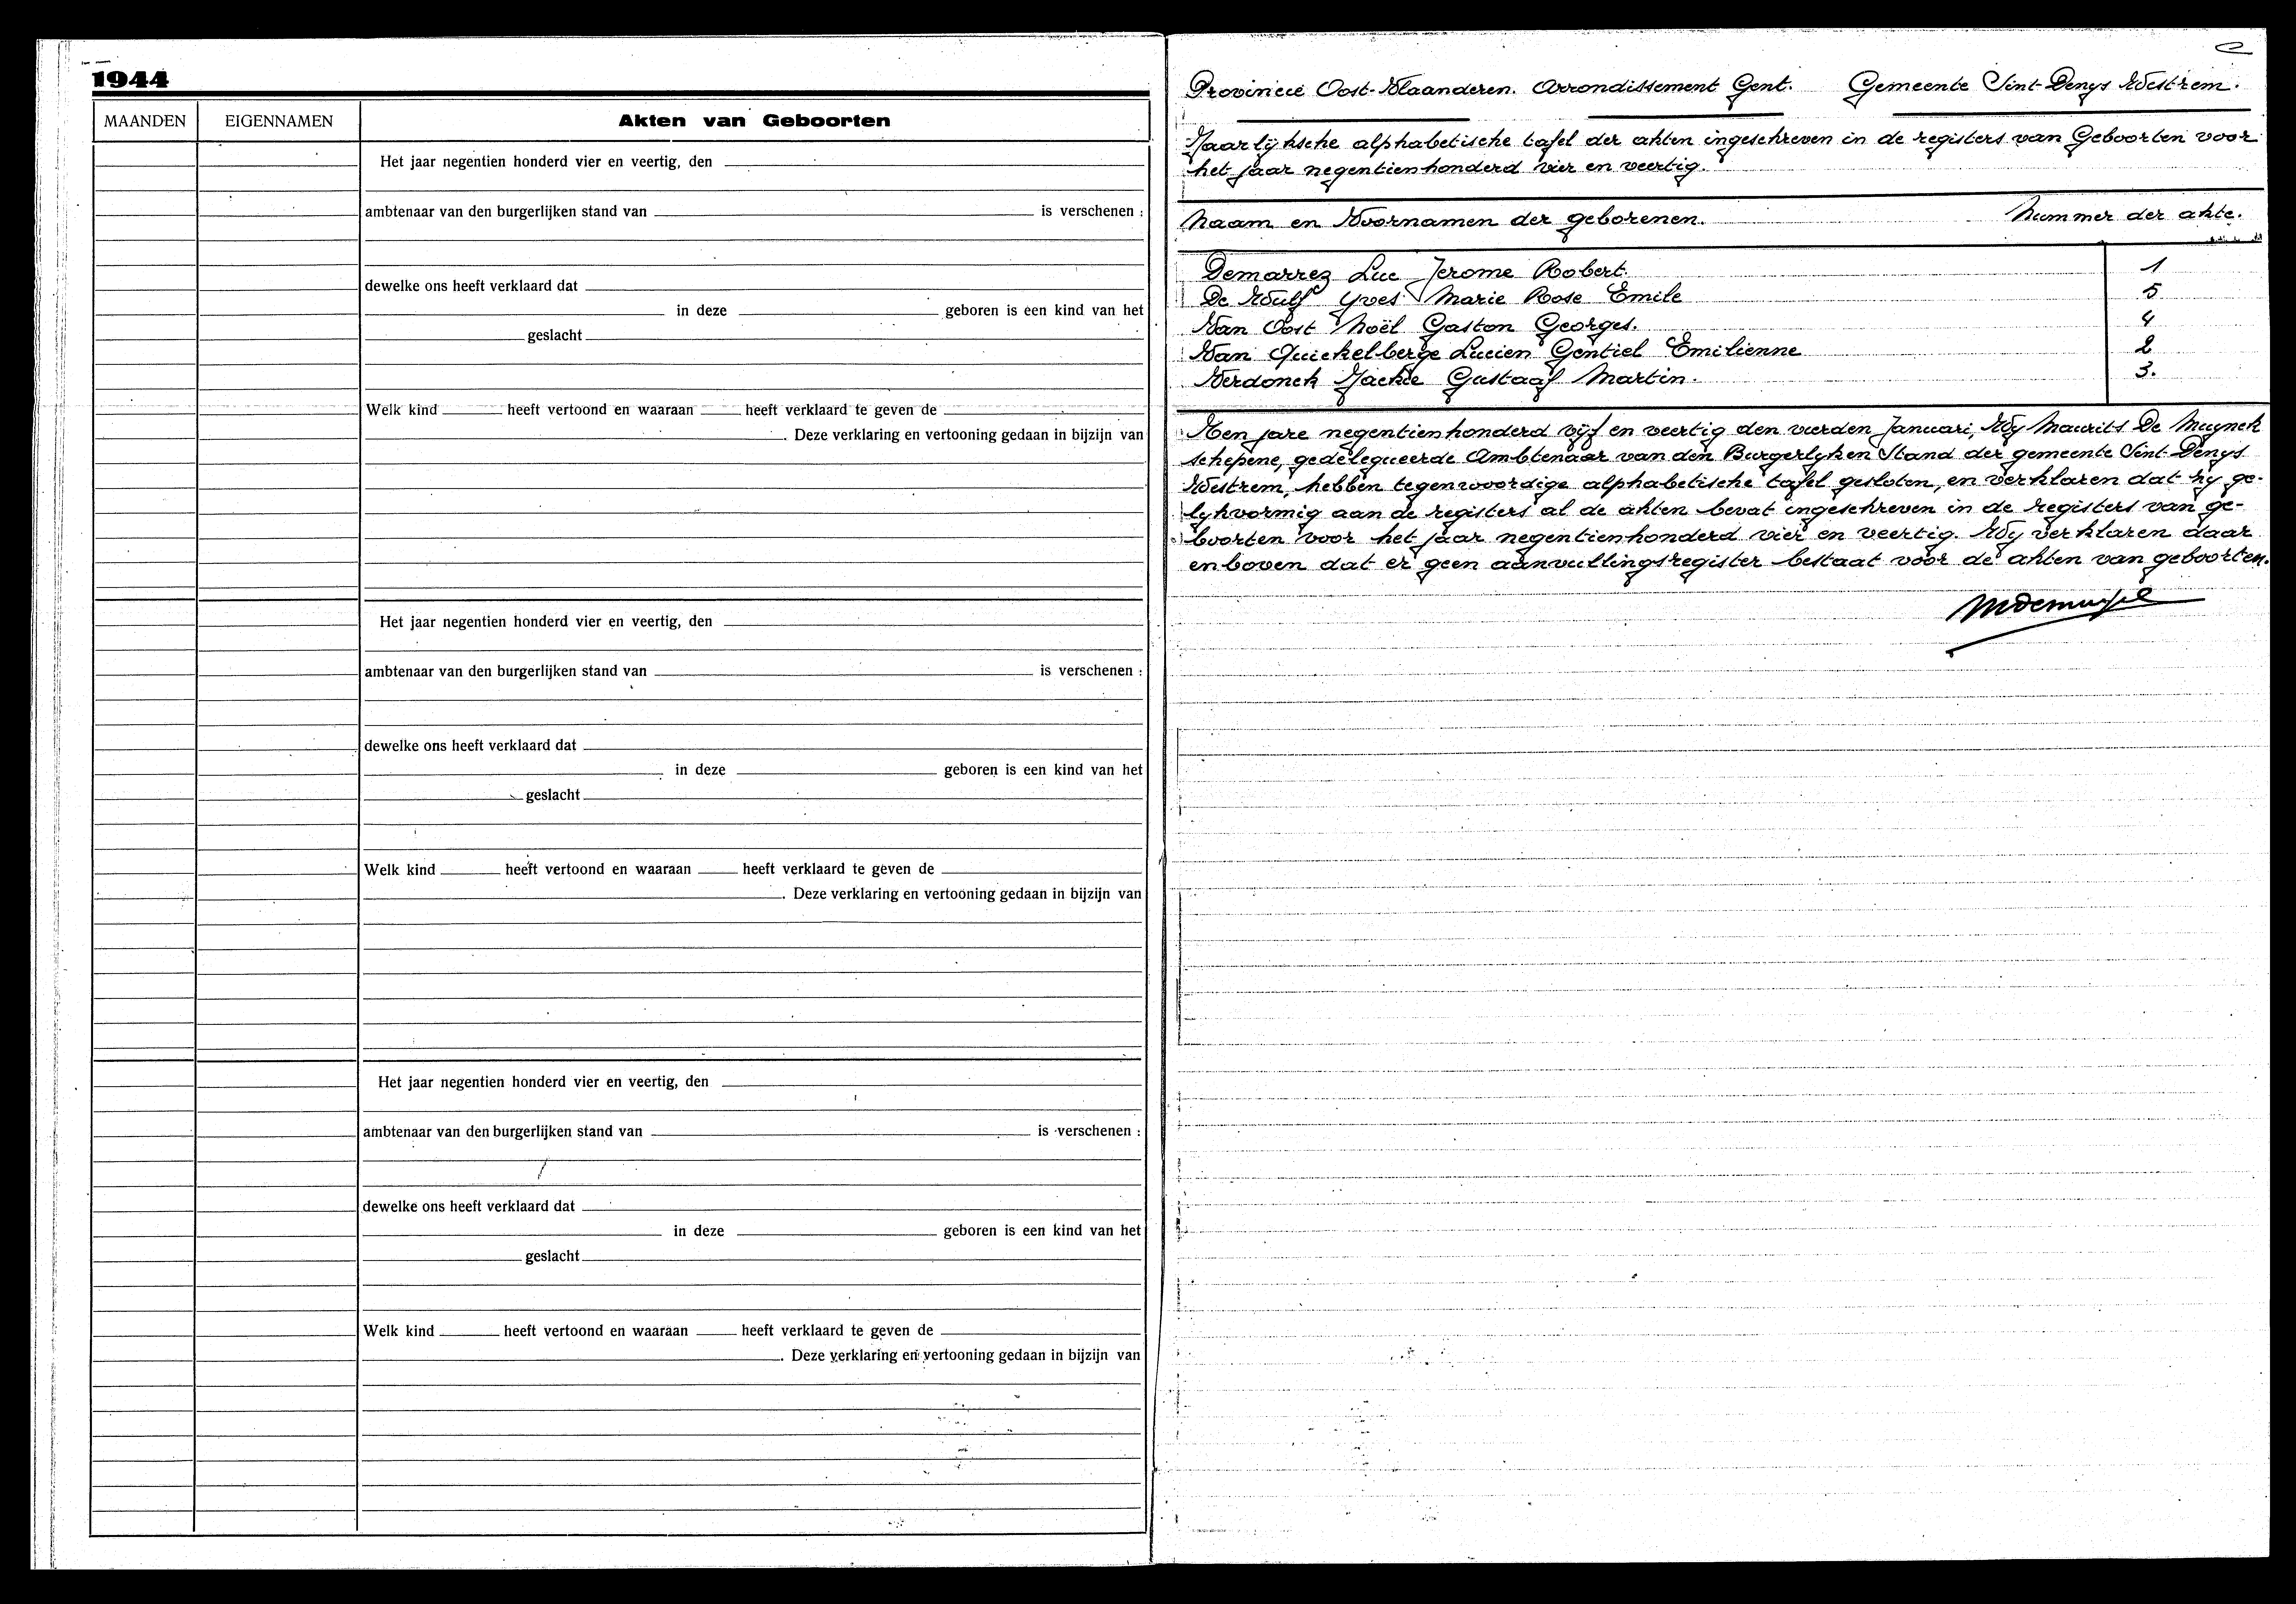 1944
MAANDEN EIGENNAMEN Akten van Geboorten
Het jaar negentien honderd vier en veertig, den
ambtenaar van den burgerlijken stand van is verschenen :
dewelke ons heeft verklaard dat
in deze geboren is een kind van het
geslacht
Welk kind heeft vertoond en waaraan heeft verklaard te geven de
. Deze verklaring en vertooning gedaan in bijzijn van
Het jaar negentien honderd vier en veertig, den
ambtenaar van den burgerlijken stand van is verschenen :
dewelke ons heeft verklaard dat
in deze geboren is een kind van het
geslacht
Welk kind heeft vertoond en waaraan heeft verklaard te geven de
. Deze verklaring en vertooning gedaan in bijzijn van
Het jaar negentien honderd vier en veertig, den
ambtenaar van den burgerlijken stand van is verschenen :
dewelke ons heeft verklaard dat
in deze geboren is een kind van het
geslacht
Welk kind heeft vertoond en waaraan heeft verklaard te geven de
. Deze verklaring en vertooning gedaan in bijzijn van
Provincie Oost-Vlaanderen. Arrondissement Gent. Gemeente Sint-Denys Westrem.
Jaarlijksche alphabetische tafel der akten ingeschreven in de registers van Geboorten voor
het jaar negentienhonderd vier en veertig.
Naam en Voornamen der geborenen. Nummer der akte.
Demarrez Luc Jerome Robert. 1
De Wulf Yves Marie Rose Emile 5
Van Oost Noël Gaston Georges. 4
Van Quickelberge Lucien Gentiel Emilienne 2
Verdonck Jackie Gustaaf Martin. 3.
Ten jare negentienhonderd vijf en veertig den vierden Januari, Wy Maurits De Muynck
schepene, gedelegueerde Ambtenaar van den Burgerlyken Stand der gemeente Sint-Denys
Westrem, hebben tegenwoordige alphabetische tafel gesloten, en verklaren dat hy ge-
lykvormig aan de registers al de akten bevat ingeschreven in de registers van ge-
boorten voor het jaar negentienhonderd vier en veertig. Wy verklaren daar
enboven dat er geen aanvullingsregister bestaat voor de akten van geboorten.